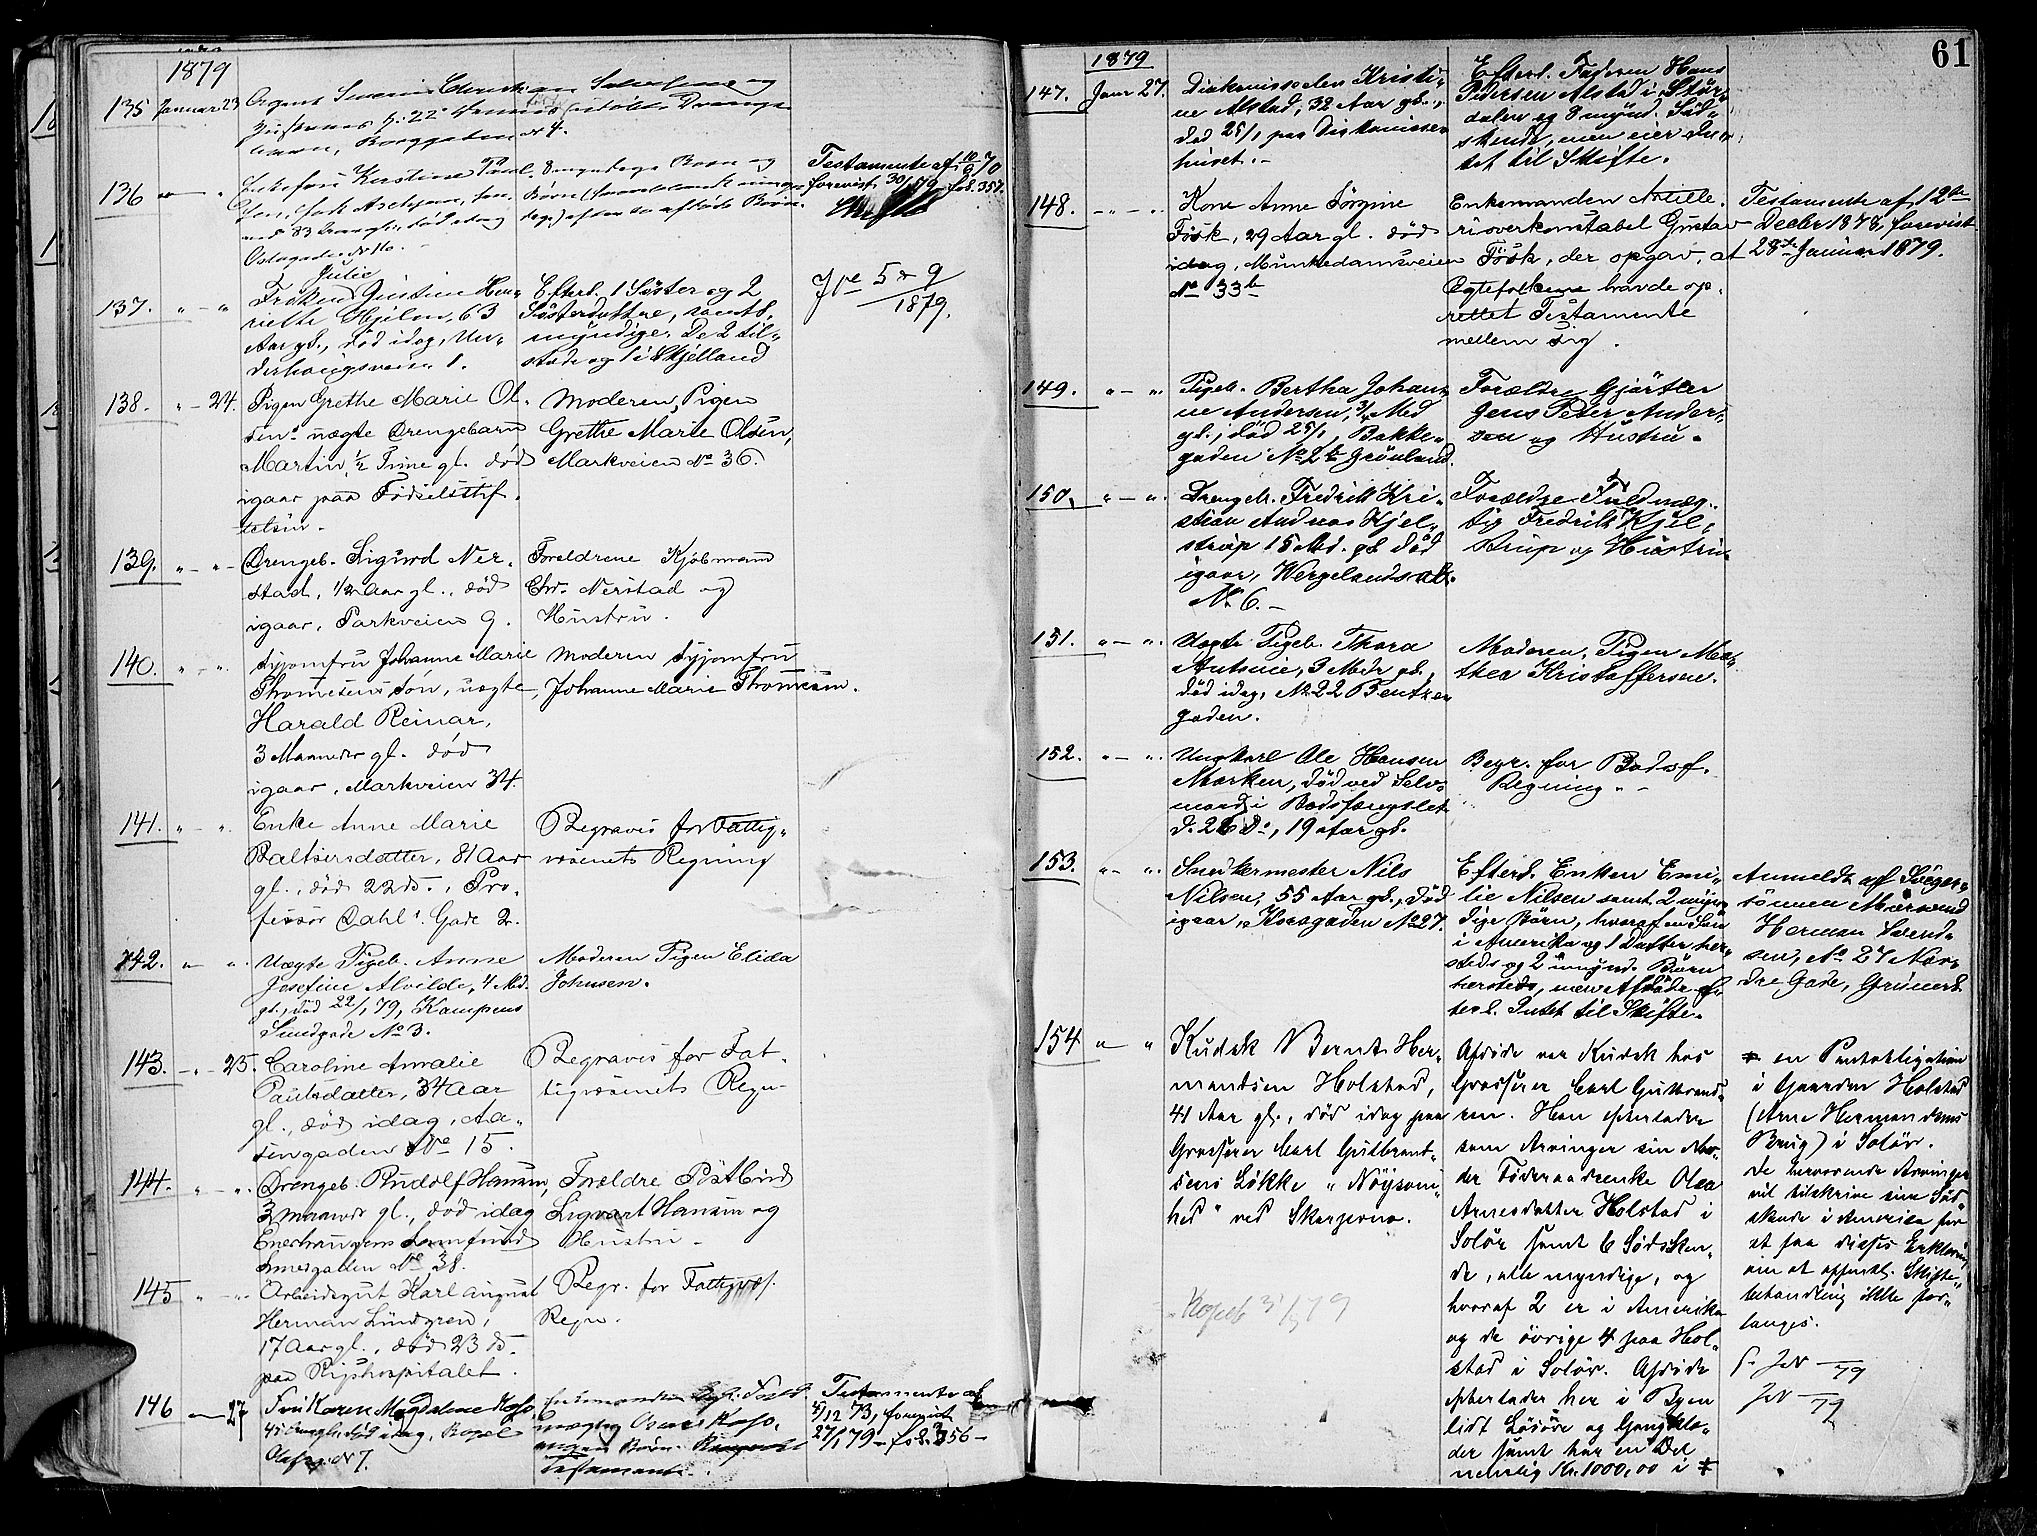 1879
135 Januar 23
136 " "
Testamente af 10/6 70
forevist 30/1 79 fol. 357.
Born og
død idag
137. " - " Julie
Frøken Hen-
riette 63
Aar gl., død idag, Un-
derhaugsveien 1.
Efterl. 1 Søster og 2
Søsterdøttre, samtl.
myndige. De 2 til-
stede og 1 i
5 & 9
1879.
138. " - 24. Pigen Grethe Marie Ol-
sens uægte Drengebarn
Martin, 1/2 Time gl. død
igaar paa Fødselsstif-
telsen.
Moderen, Pigen
Grethe Marie Olsen,
Markveien No 36.
139. " - " - Drengeb. Sigurd Ner-
stad, 1/2 Aar gl., død
igaar, Parkveien 9.
Foreldrene Kjøbmand
Chr. Nerstad og
Hustru.
140. " - " Syjomfru Johanne Marie
Thomesens Søn, uægte,
Harald Reinar,
3 Maaneder gl. død
igaar, Markveien 34.
Moderen Syjomfru
Johanne Marie Thomesen.
141. " - " Enke Anne Marie
Baltsersdatter, 81 Aar
gl., død 22 ds., Pro-
fessor Dahls Gade 2.
Begraves for Fattig-
væsenets Regning
142. " " Uægte Pigeb. Anne
Josefine Alvilde, 4 Md.
gl., død 22/1 79, Kampens
Sundgade No 3.
Moderen Pigen Elida
Johnsen.
143. - " - 25. Caroline Amalie
Paulsdatter, 34 Aar
gl., død idag, Aa-
sengaden No 15.
Begraves for Fat-
tigvæsenets Regn-
144. " - " Drengeb. Rudolf Hansen,
3 Maaneder gl., død idag
Enerhaugens Samfund
Smedgaden No 38.
Forældre Postbud
Sigvart Hansen og
Hustru -
145 " - " Arbeidsgut Karl August
Herman Lundgren,
17 Aar gl., død 23 ds.
paa Rigshospitalet.
Begr. for Fattigvæs.
Regn.
146 - 27 Fru Karen Magdalene
død idag,
Olafsg. No 7.
Enkemanden
Børn.
Testamente.
Testamente af
4/12 73, forevist
27/1 79 - fol. 356 -
61
1879
147. Janr 27. Diakonissoelev Kristi-
ne Alstad, 32 Aar gl.,
død 25/1 paa Diakonisse-
huset. -
Efterl. Faderen Hans
Pedersen Alstad i Stør-
dalen og 8 mynd. Sød-
skende, men eier In-
tet til Skifte.
148. - " - " Kone Anne Jørgine
Føsk, 29 Aar gl. død
idag, Munkedamsveien
No 33b
Enkemanden Artille-
rioverkonstabel Gustav
Føsk, der opgav, at
Ægtefolkene havde op-
rettet Testamente
mellem sig.
Testamente af 12te
Decbr 1878, forevist
28de Januar 1879.
149. " - " Pigeb. Bertha Johan-
ne Andersen, 3/4 Md
gl., død 25/1, Bakke-
gaden No 2b Grønland.
Forældre Gjørtler
Jens Peter Ander-
sen og Hustru.
150. " - " Drengeb. Fredrik Kri-
stian Andreas Kjel-
strup 15 Md. gl. død
igaar, Wergelands
No 6. -
Forældre Fuldmæg-
tig Fredrik Kjel-
strup og Hustru.
151. " - " Uægte Pigeb. Thora
Antonie, 3 Mdr gl.,
død idag, No 22 Bentzen
gaden.
Moderen, Pigen Ma-
thea Kristoffersen.
152. " - " Ungkarl Ole Hansen
Morken, død ved Selv-
mord i Bodsfængslet
d. 26 ds, 19 Aar gl.
Begr. for Bodsf.
Regning. -
153. " - " Snedkermester Nils
Nilsen, 55 Aar gl., død
igaar, Korsgaden No 27.
Efterl. Enken Emi-
lie Nilsen samt 2 myn-
dige Børn, hvoraf en Søn
i Amerika og 1 Datter her-
steds og 2 umynd. Børn
hersteds, men Afdøde ef-
terl. Intet til Skifte.
Anmeldt af Sviger-
sønnen Murersvend
Herman Svend-
sen, No 27 Nor-
dre Gade, Grünerl.
154 " " Kudsk Bernt Her-
mandsen Holstad,
41 Aar gl., død idag paa
Grosserer Carl Gulbrand-
sens Løkke "Nøysom-
hed" ved Skarpsno.
Kopeb 3/5 79
Afdøde var Kudsk hos
Grosserer Carl Gulbrand-
sen. Han efterlader
som Arvinger sin Mo-
der Føderaadsenke Olea
Arnesdatter Holstad i
Solør samt 6 Sødsken-
de, alle myndige, og
hvoraf 2 er i Amerika
og de øvrige 4 paa Hol-
stad i Solør. Afdøde
efterlader her i Byen
lidt Løsøre og Gangklæ-
der samt har en Del
nemlig Kr. 1000,00 i *
* en Pantobligation
i Gaarden Holstad
(Arne Hermandsens
Brug) i Solør.
De herværende Arvinger
vil tilskrive sine Sød-
skende i Amerika for
at faa disses Erklæring
om at offentl. Skifte-
behandling ikke for-
langes.
79
79